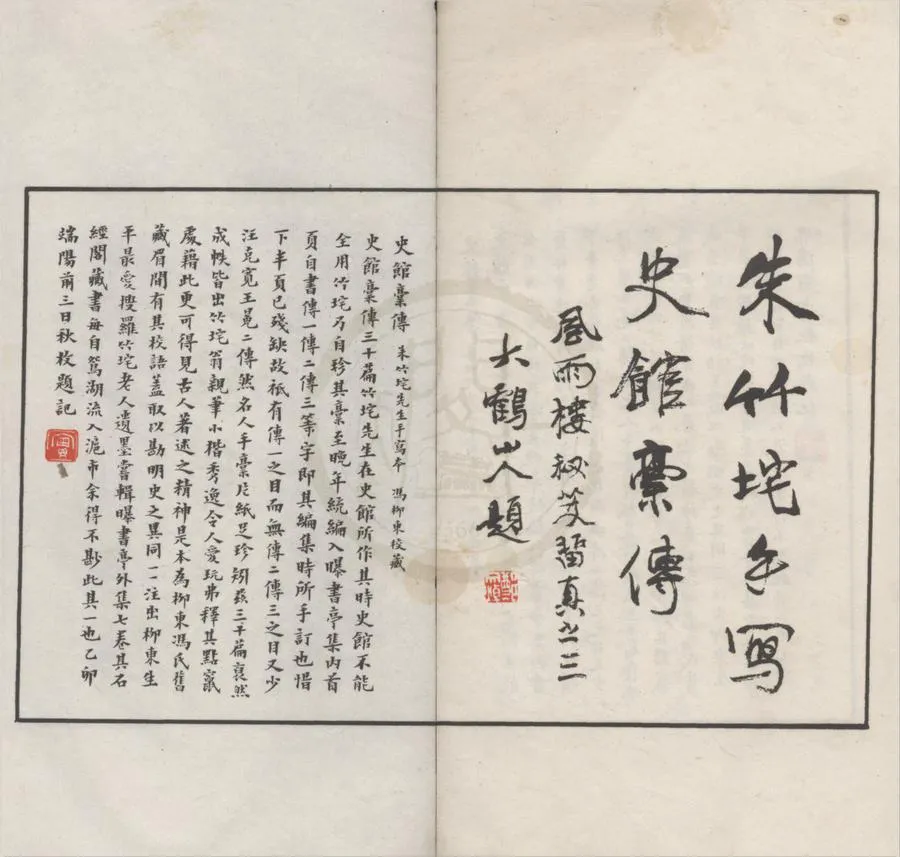 朱竹垞手寫
史館稾傳
風雨樓秘笈留真之三
大鶴山人題
史館稾傳 朱竹垞先生手寫本 馮柳東校藏
史館稾傳三十篇竹垞先生在史館所作其時史館不能
全用竹垞乃自珍其稾至晚年統編入曝書亭集內首
頁自書傳一傳二傳三等字即其編集時所手訂也惜
下半頁已殘缺故祇有傳一之目而無傳二傳三之目又少
汪克寬王冕二傳然名人手稾片紙足珍矧茲三十篇裒然
成帙皆出竹垞翁親筆小楷秀逸令人愛玩弗釋其點竄
處藉此更可得見古人著述之精神是本為柳東馮氏舊
藏眉間有其校語蓋取以勘明史之異同一一注出柳東生
平最愛搜羅竹垞老人遺墨嘗輯曝書亭外集七卷其石
經閣藏書每自鴛湖流入滬市余得不尠此其一也乙卯
端陽前三日秋枚題記